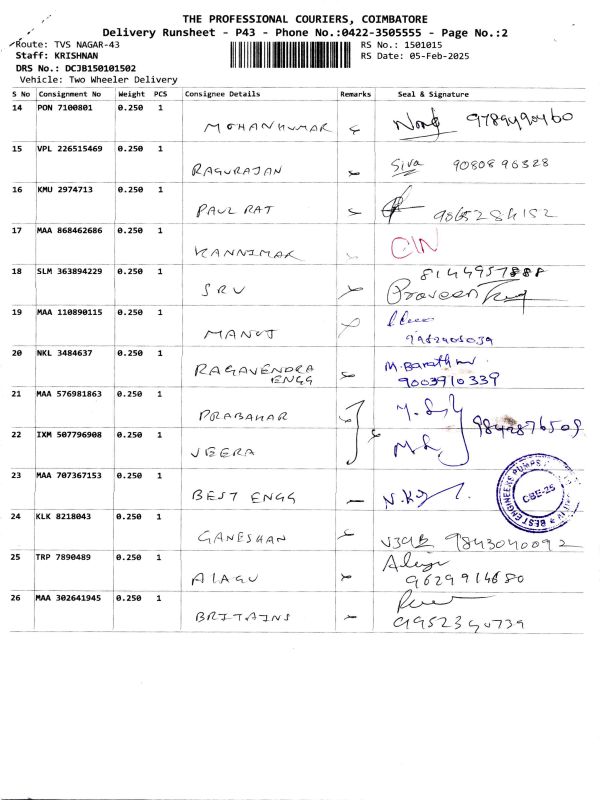 THE PROFESSIONAL COURIERS, COIMBATORE
Delivery Runsheet - P43 - Phone No.:0422-3505555 - Page No.:2
Route: TVS NAGAR-43 RS No.: 1501015
Staff: KRISHNAN RS Date: 05-Feb-2025
DRS No.: DCJB150101502
Vehicle: Two Wheeler Delivery
S No Consignment No Weight PCS Consignee Details Remarks Seal & Signature
14 PON 7100801 0.250 1
MOHANKUMAR
15 VPL 226515469 0.250 1
RAGURAJAN Siva 9080896328
16 KMU 2974713 0.250 1
PAUL RAJ
17 MAA 868462686 0.250 1
KANNIMAR CIN
18 SLM 363894229 0.250 1 8144957888
SRV Praveen
19 MAA 110890115 0.250 1
MANOJ
20 NKL 3484637 0.250 1
RAGAVENDRA ENGG 9003910339
21 MAA 576981863 0.250 1
PRABAHAR
22 IXM 507796908 0.250 1
VEERA
23 MAA 707367153 0.250 1
BEST ENGG BEST ENGINEERS PUMPS CBE-25
24 KLK 8218043 0.250 1
GANESHAN 9843040092
25 TRP 7890489 0.250 1
ALAGU 9629914680
26 MAA 302641945 0.250 1
BRITAINS